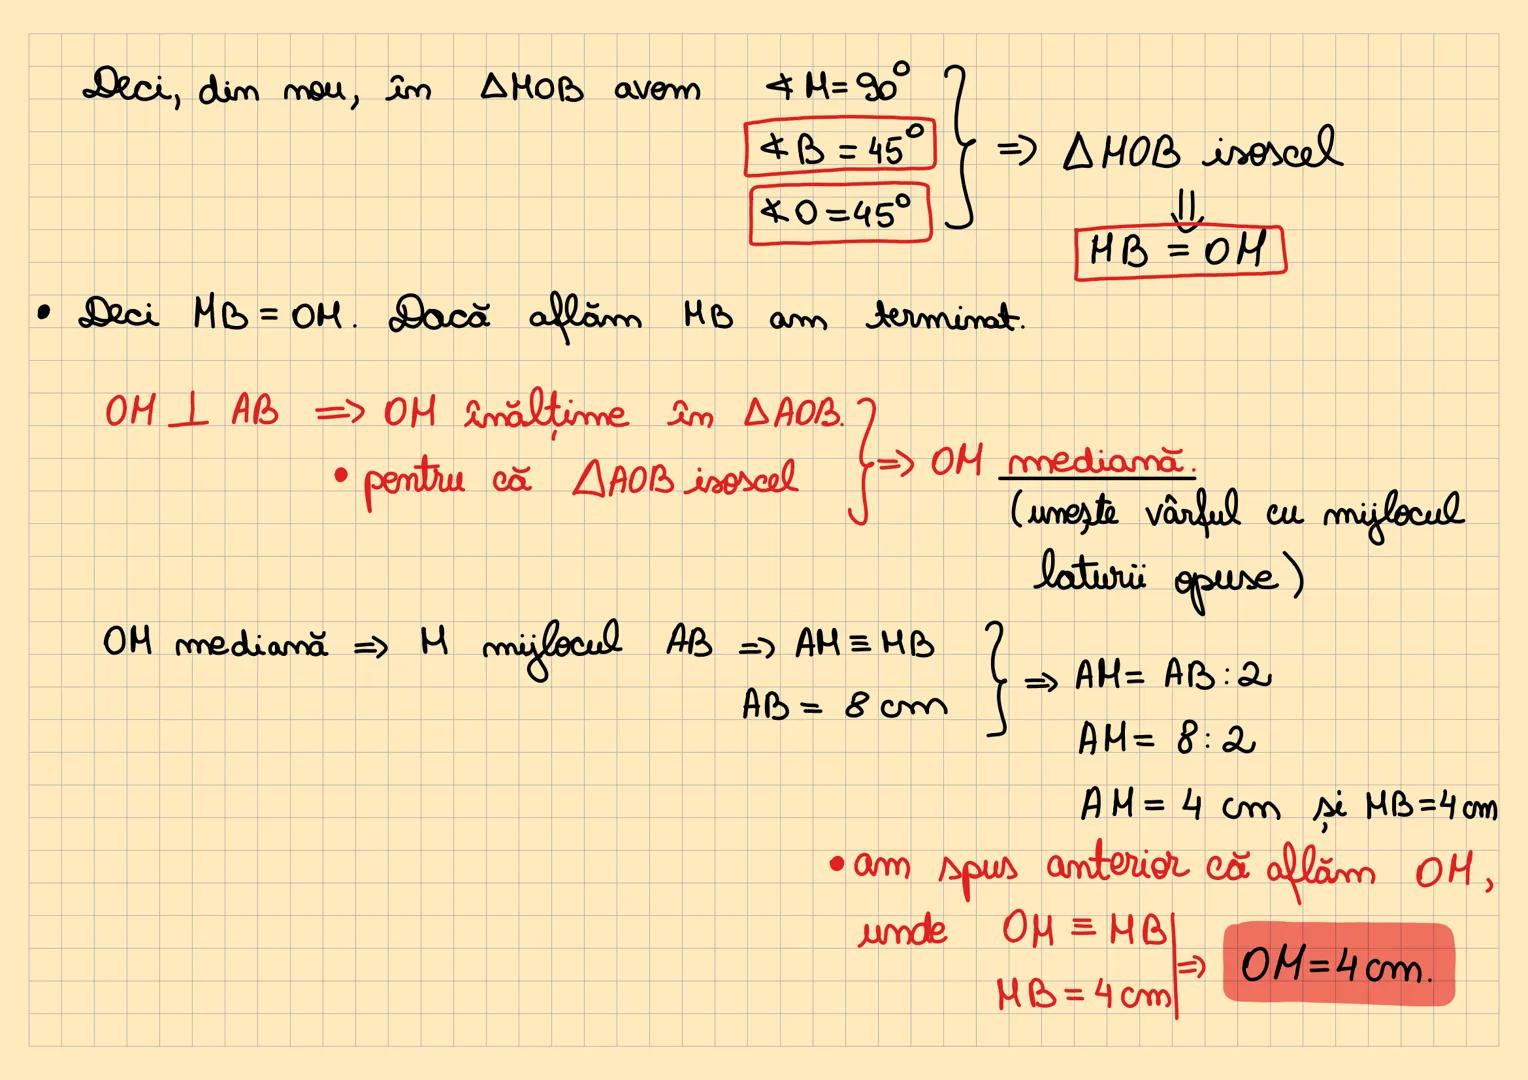 Deci, din nou, în △MOB avem ∢ M = 90°
∢ B = 45° => △ MOB isoscel
∢ O = 45° ⇓
MB = OM
• Deci MB = OM. Dacă aflăm MB am terminat.
OM ⊥ AB => OM înălțime în △AOB.
• pentru că △AOB isoscel => OM mediană.
(unește vârful cu mijlocul
laturii opuse)
OM mediană => M mijlocul AB => AM ≡ MB
AB = 8 cm => AM = AB : 2
AM = 8 : 2
AM = 4 cm și MB = 4 cm
• am spus anterior că aflăm OM,
unde OM ≡ MB
MB = 4 cm => OM = 4 cm.